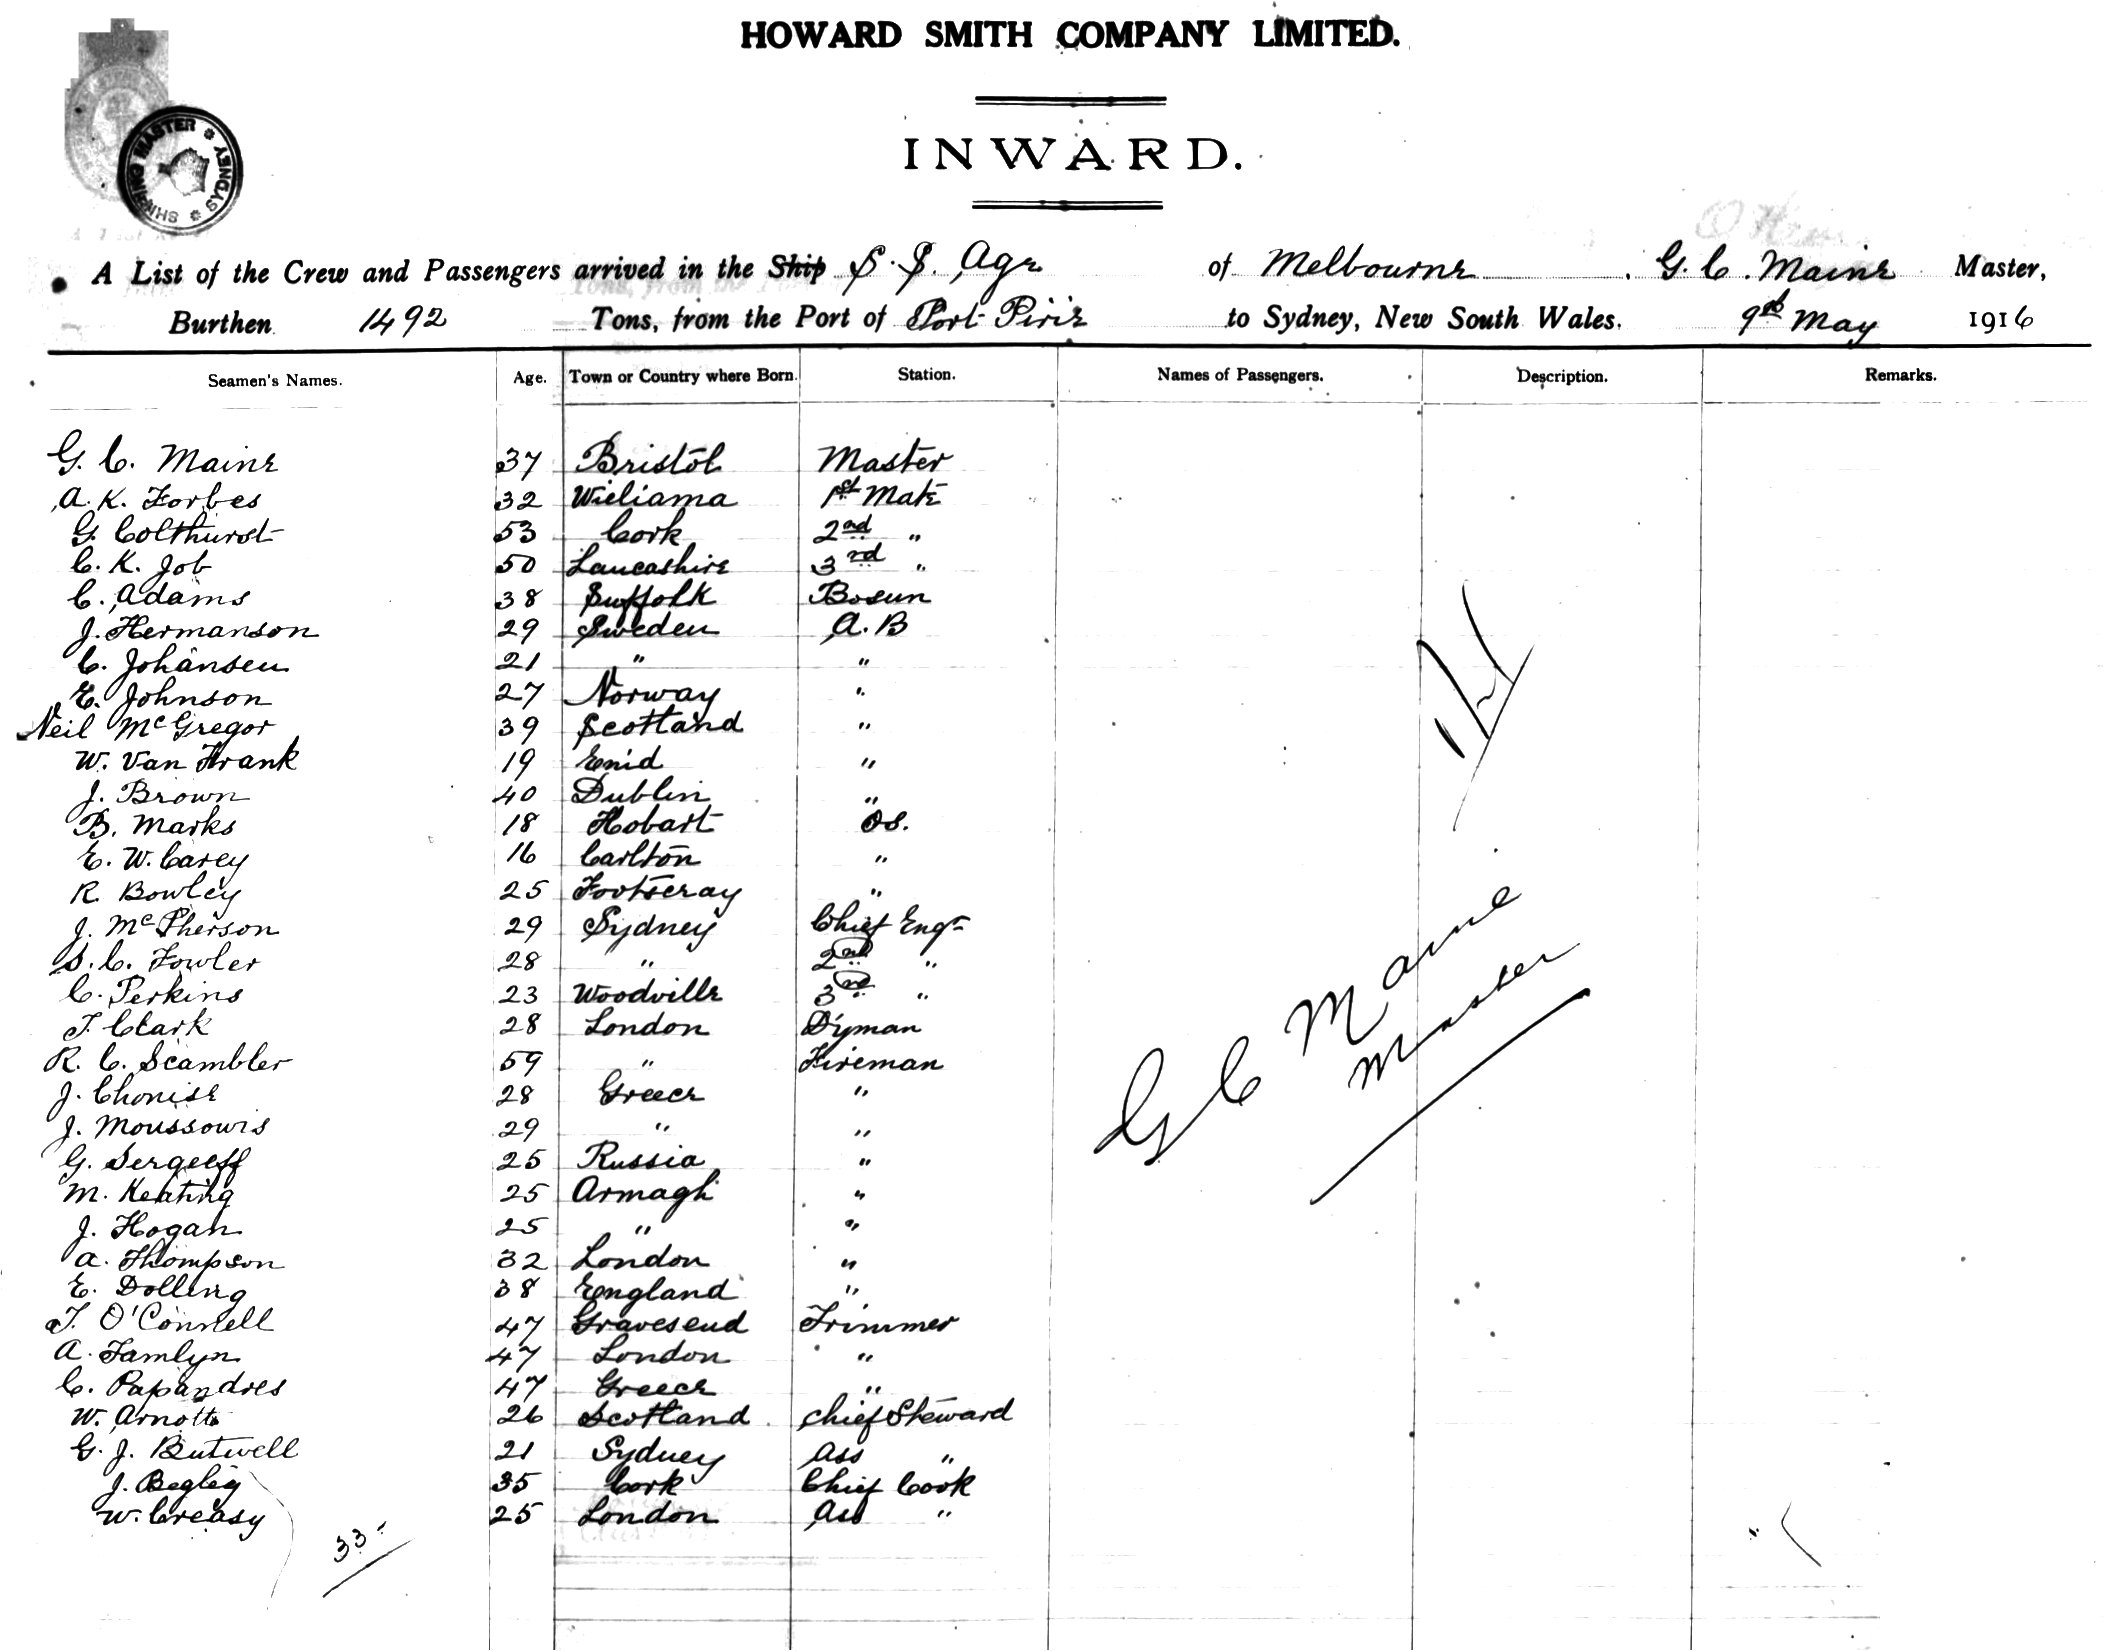 HOWARD SMITH COMPANY LIMITED.
INWARD.
SHIPPING MASTER * SYDNEY *
A List of the Crew and Passengers arrived in the Ship S.S. Age of Melbourne. G. C. Maine Master,
Burthen 1492 Tons, from the Port of Port Pirie to Sydney, New South Wales. 9th May 1916
Seamen's Names. Age. Town or Country where Born. Station. Names of Passengers. Description. Remarks.
G. C. Maine 37 Bristol Master
A. K. Forbes 32 Williama 1st Mate
G. Colthurst 53 Cork 2nd "
C. K. Job 50 Lancashire 3rd "
C. Adams 38 Suffolk Bosun
J. Hermanson 29 Sweden A.B
C. Johansen 21 " "
E. Johnson 27 Norway "
Neil McGregor 39 Scotland "
W. Van Frank 19 Enid "
J. Brown 40 Dublin "
B. Marks 18 Hobart OS.
E. W. Carey 16 Carlton "
R. Bowley 25 Footscray "
J. McPherson 29 Sydney Chief Engr
S. C. Fowler 28 " 2nd "
C. Perkins 23 Woodville 3rd "
T. Clark 28 London D'yman
R. C. Scambler 59 " Fireman
J. Chonise 28 Greece "
J. Moussouris 29 " "
G. Sergeeff 25 Russia "
M. Keating 25 Armagh "
J. Hogan 25 " "
A. Thompson 32 London "
E. Dolling 38 England "
T. O'Connell 47 Gravesend Trimmer
A. Tamlyn 47 London "
C. Papandres 47 Greece "
W. Arnott 26 Scotland Chief Steward
G. J. Butwell 21 Sydney Ass "
J. Begley 35 Cork Chief Cook
W. Creasy 25 London Ass "
33
G C Maine
Master